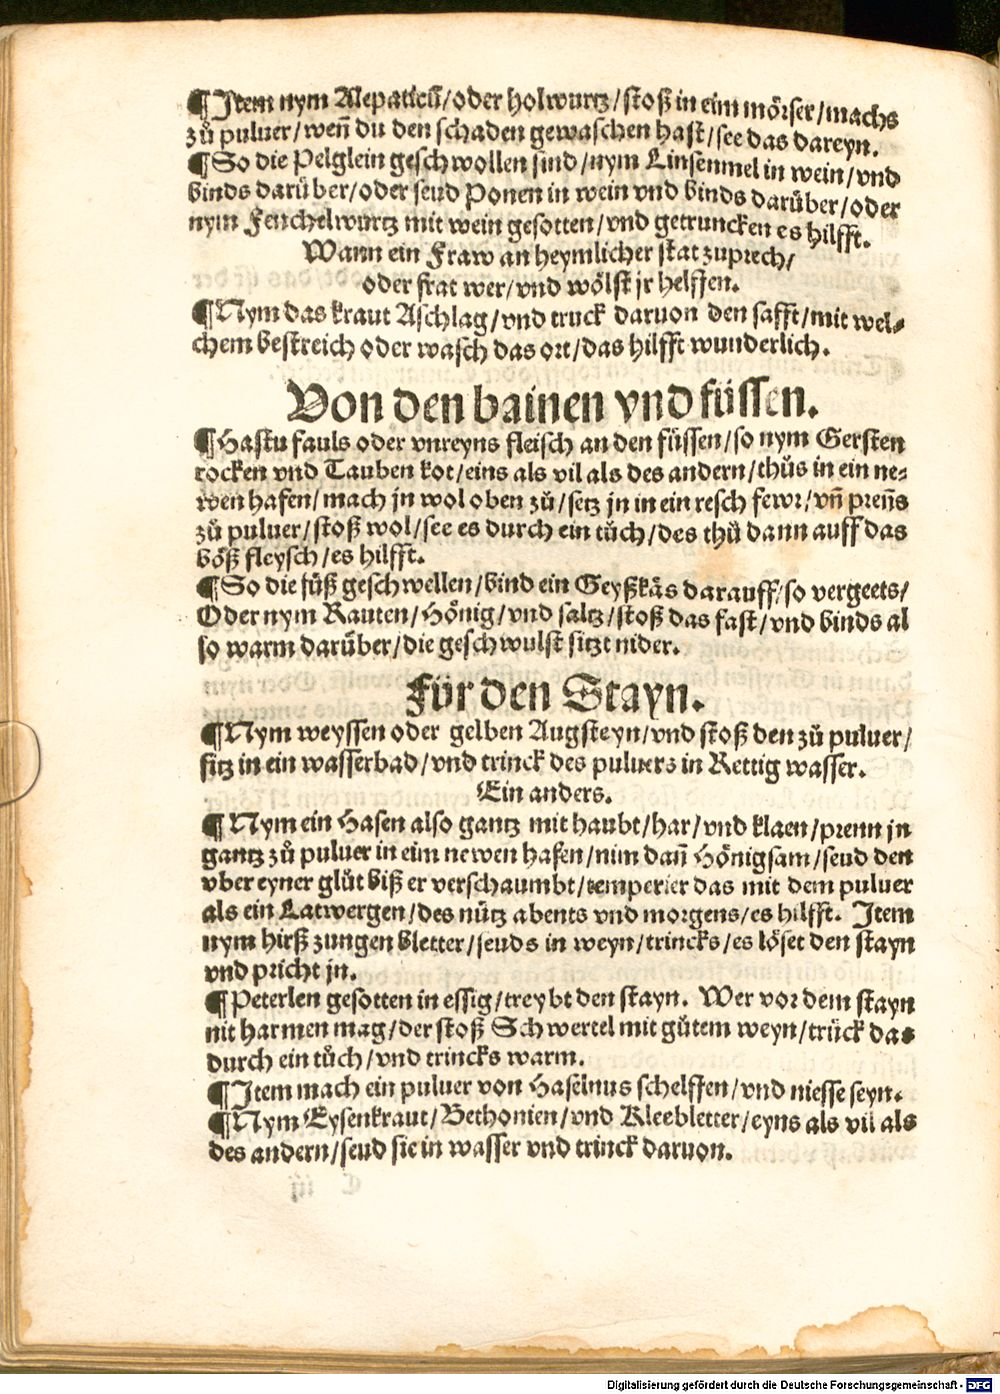 ¶Item nym Alepaticū/oder holwurtz/stoß in eim mörser/machs
zů puluer/weñ du den schaden gewaschen hast/see das dareyn.
¶So die Pelglein geschwollen sind/nym Linsenmel in wein/vnd
binds darüber/oder seud Ponen in wein vnd binds darüber/oder
nym Fenchelwurtz mit wein gesotten/vnd getruncken es hilfft.
Wann ein Fraw an heymlicher stat zuprech/
oder frat wer/vnd wölst jr helffen.
¶Nym das kraut Aschlag/vnd truck daruon den safft/mit wel⸗
chem bestreich oder wasch das ort/das hilfft wunderlich.
Von den bainen vnd füssen.
¶Hastu fauls oder vnreyns fleisch an den füssen/so nym Gersten
rocken vnd Tauben kot/eins als vil als des andern/thůs in ein ne⸗
wen hafen/mach jn wol oben zů/setz jn in ein resch fewr/vñ preñs
zů puluer/stoß wol/see es durch ein tůch/des thů dann auff das
böß fleysch/es hilfft.
¶So die füß geschwellen/bind ein Geyßkäs darauff/so vergeets/
Oder nym Rauten/Hönig/vnd saltz/stoß das fast/vnd binds al
so warm darüber/die geschwulst sitzt nider.
Für den Stayn.
¶Nym weyssen oder gelben Augsteyn/vnd stoß den zů puluer/
sitz in ein wasserbad/vnd trinck des puluers in Rettig wasser.
Ein anders.
¶Nym ein Hasen also gantz mit haubt/har/vnd klaen/prenn jn
gantz zů puluer in eim newen hafen/nim dañ Hönigsam/seud den
vber eyner glůt biß er verschaumbt/temperier das mit dem puluer
als ein Latwergen/des nütz abents vnd morgens/es hilfft. Item
nym hirß zungen bletter/seuds in weyn/trincks/es löset den stayn
vnd pricht jn.
¶Peterlen gesotten in essig/treybt den stayn. Wer vor dem stayn
nit harmen mag/der stoß Schwertel mit gůtem weyn/trück das
durch ein tůch/vnd trincks warm.
¶Item mach ein puluer von Haselnus schelffen/vnd niesse seyn.
¶Nym Eysenkraut/Bethonien/vnd Kleebletter/eyns als vil als
des andern/seud sie in wasser vnd trinck daruon.
Digitalisierung gefördert durch die Deutsche Forschungsgemeinschaft - DFG